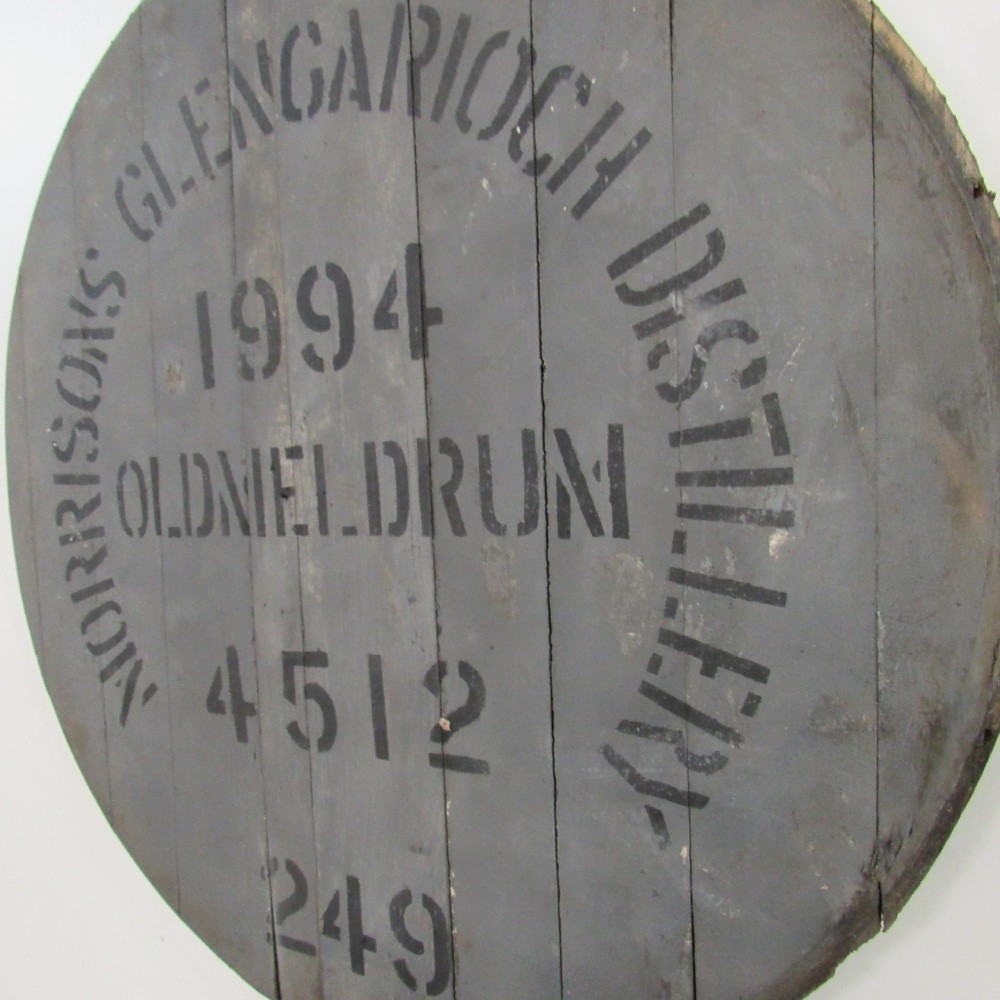 MORRISONS' GLENGARIOCH DISTILLERY
1994
OLDMELDRUM
4512
249